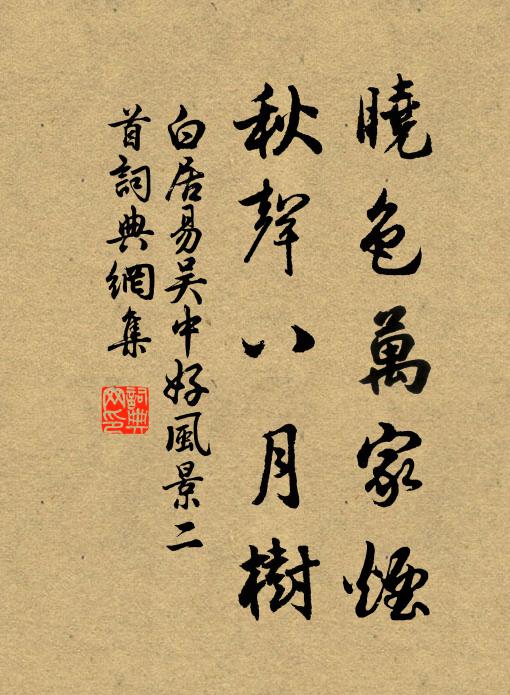 曉色萬家煙
秋聲八月樹
白居易吳中好風景二
首詞典網集
詞典
网印